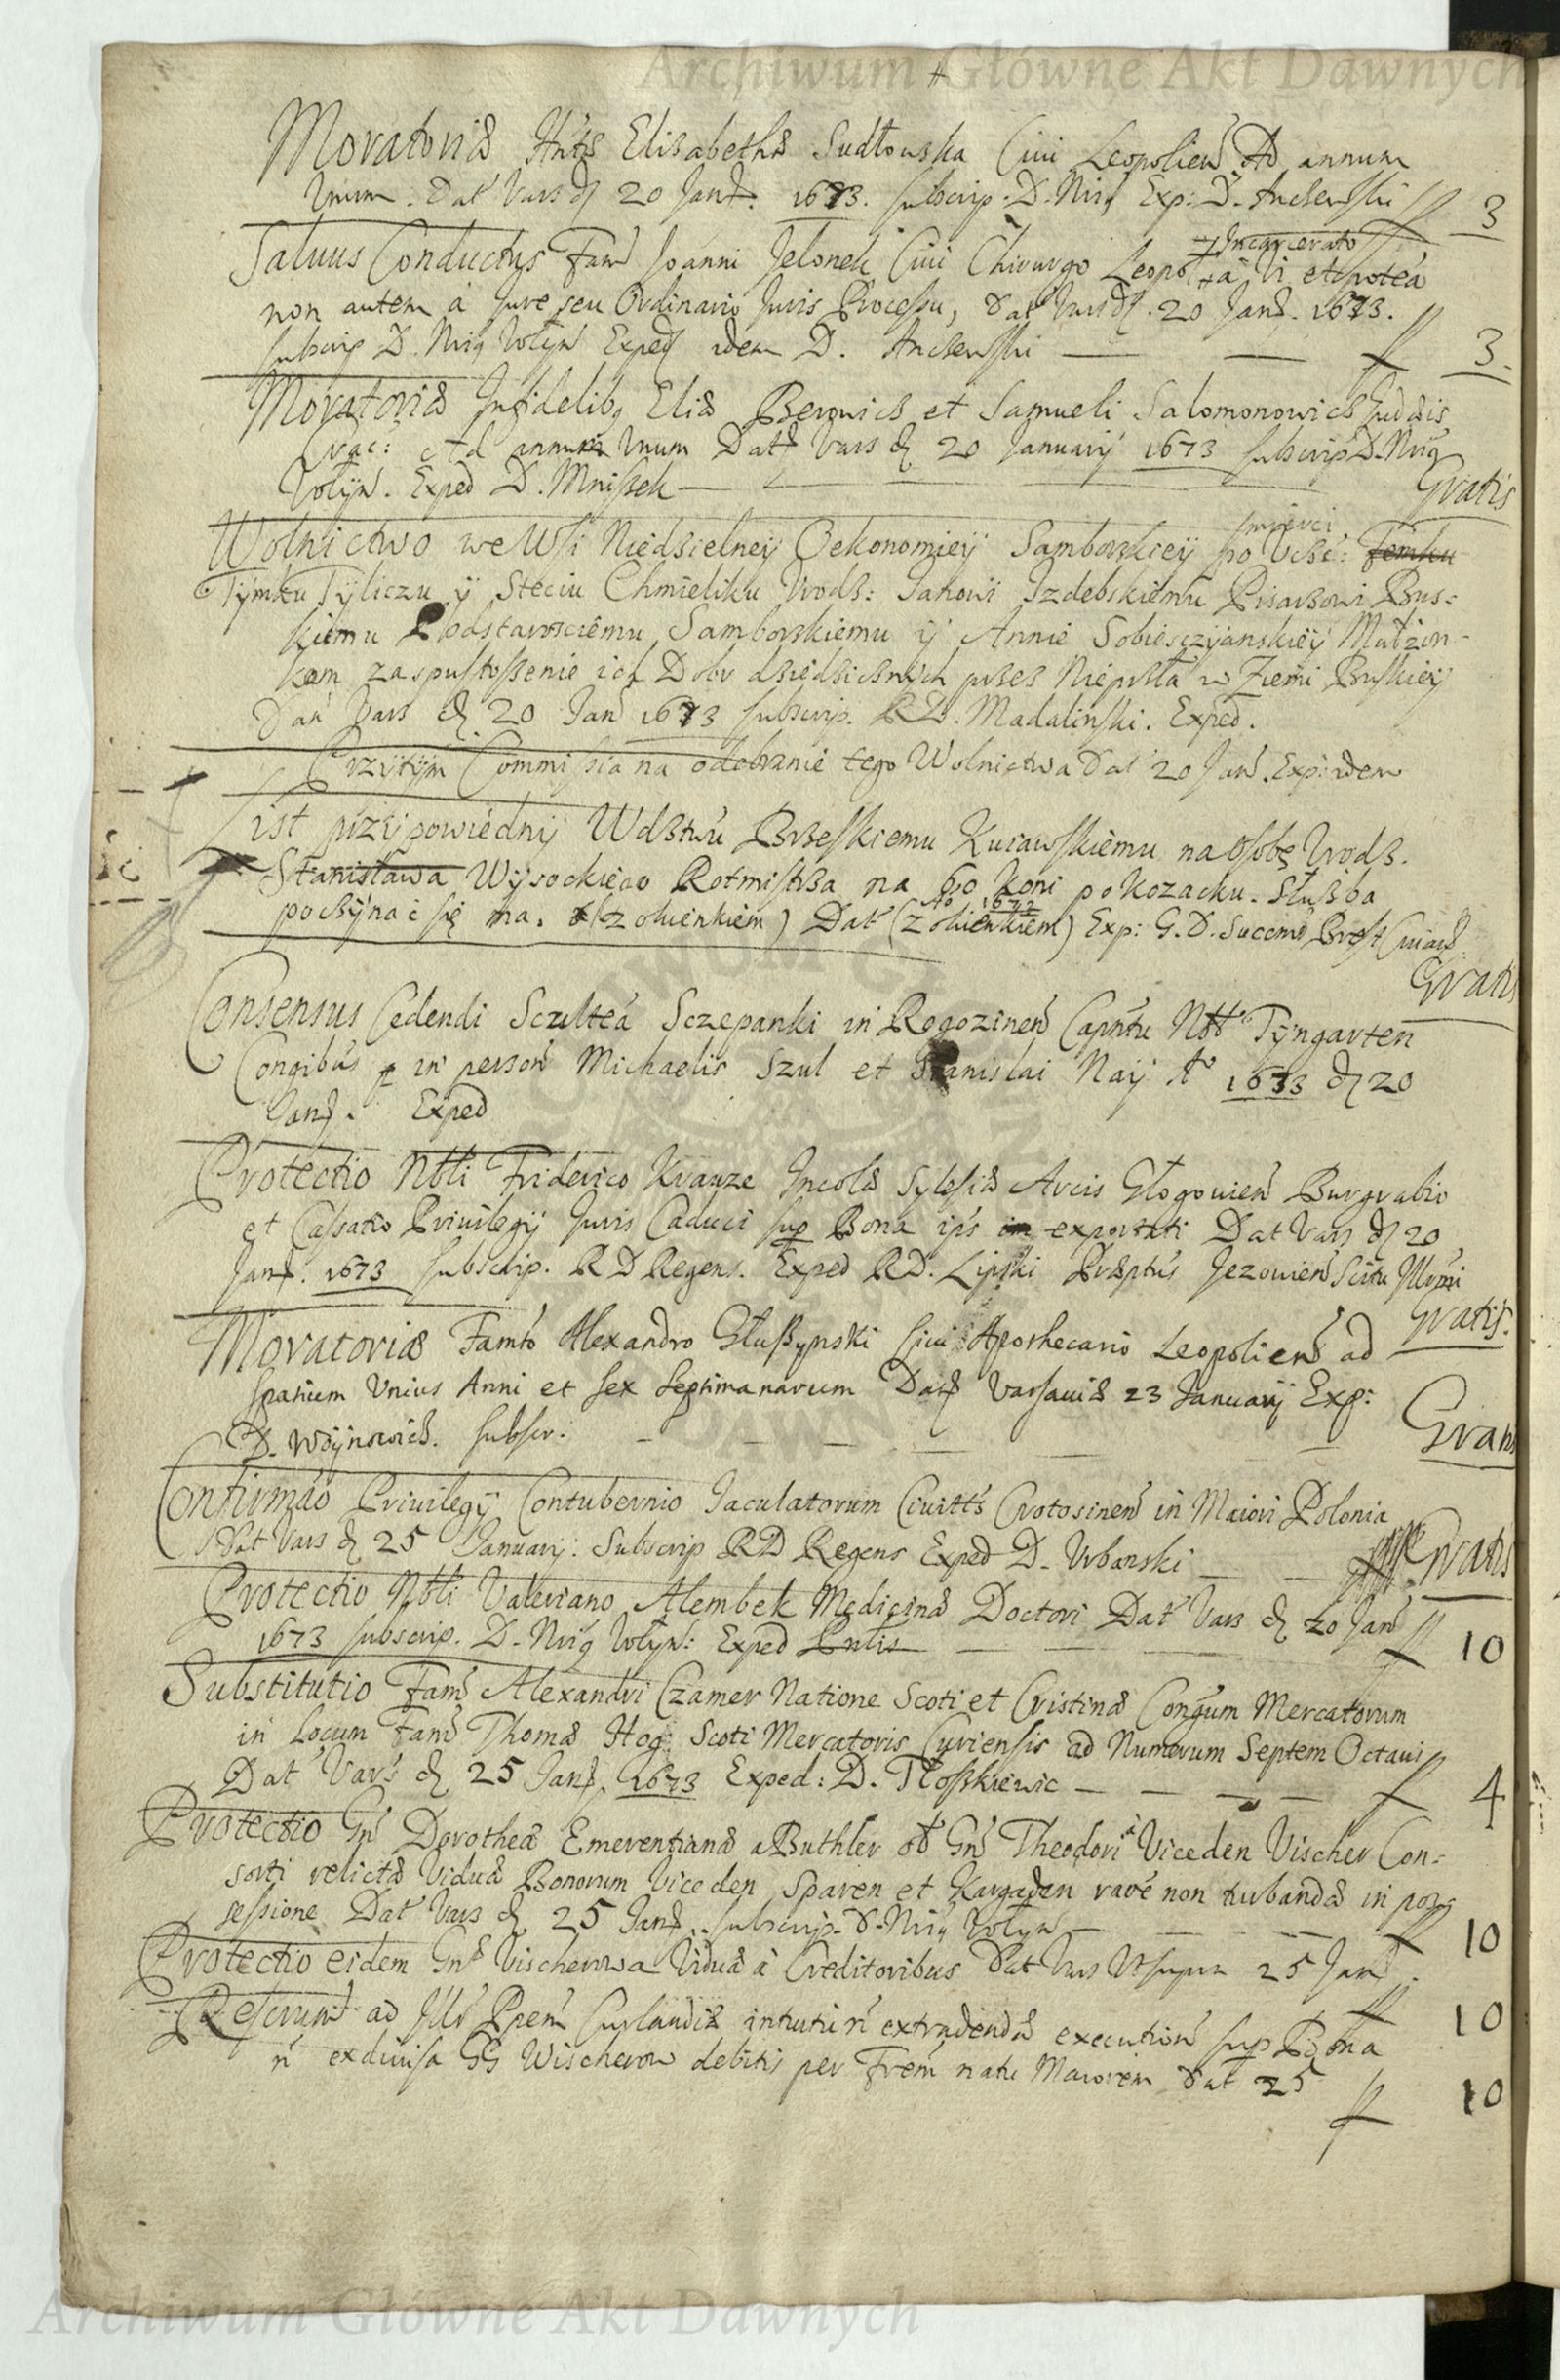 Archiwum Główne Akt Dawnych
Moratoriæ Hntæ Elisabethæ Sudłowska Civi Leopolien Ad annum
Unum. Dat Vars d 20 Jan. 1673. subscrip. D. Nrig Exp: D. Anczewski 3
Incarcerato
Salvus Conductus Fam Joanni Jelonek Civi Chirurgo Leopol a Vi et potea
non autem à Jure seu Ordinario Juris Processu, Dat Vars d. 20 Jan. 1673.
subscrip D. Nrig Wołyn Exped idem D. Anczewski 3.
Moratoriæ Infidelibq Eliæ Berowicz et Samueli Salomonowicz Judæis
Crac: Ad annum Unum Dat Vars d 20 Januarij 1673 subscrip D. Nrig
Wołyn. Exped D. Mniszek Gratis
śmierci
Wolnictwo we Wsi Niedzielney Oekonomiey Samborskiey po Ucz: Femku
Tymku Tyliczu y Steciu Chmieliku Urodz: Janowi Izdebskiemu Pisarzowi Bus:
kiemu Podstarosciemu Samborskiemu y Annie Sobiesczyanskiey Małżon-
kom za spustoszenie ich Dobr dziedzicznych przez Nieprzła w Ziemi Buskiey
Dan Vars d 20 Jan 1673 subscrip. RD. Madalinski. Exped.
Przytym Commissia na odebranie tego Wolnictwa Dat 20 Jan. Exp: idem
List przypowiedny Wdztwu Brzeskiemu Kuiawskiemu na Osobę Urodz.
Stanisława Wysockiego Rotmistrza na 60 Koni po Kozacku. Służba
Ao 1672
poczynac się ma. (z okienkiem) Dat (z okienkiem) Exp: G. D. Succam Brest Cuiav
Gratis
Consensus Cedendi Scultea Sczepanki in Rogozinen Capntu Nbb Tyngarten
Congibus in person Michaelis Szul et Stanislai Nay Ao 1673 d 20
Jan. Exped
Protectio Nbli Friderico Krauze Incolæ Sylesiæ Arcis Głogovien Burgrabio
et Cassatio Privilegij Juris Caduci sup Bona ips exportati Dat Vars d 20
Jan. 1673 subscrip. RD Regens. Exped RD. Lipski Præptus Jezovien Scitu Illmi
Gratis.
Moratoriæ Famto Alexandro Głuszynski Civi Apothecario Leopolien ad
spatium Unius Anni et sex Septimanarum Dat Varsaviæ 23 Januarij Exp:
D. Woynowicz. subscr: Gratis
Confirmao Privilegij Contubernio Jaculatorum Civitts Crotosinen in Maiori Polonia
Dat Vars d 25 Januarij: Subscrip RD Regens Exped D. Urbanski Gratis
Protectio Nbli Valeriano Alembek Medicinæ Doctori Dat Vars d 20 Jan
1673 subscrip. D. Nrig Wołyn: Exped 10
Substitutio Fam Alexandri Czamer Natione Scoti et Cristinæ Congum Mercatorum
in Locum Fam Thomæ Hog Scoti Mercatoris Curiensis ad Numerum Septem Octavi
Dat Vars d 25 Jan. 1673 Exped: D. Tłoszkiewic 4
Protectio Gn Dorotheæ Emerentianæ a Buthler ol Gn Theodori à Viceden Vischer Con:
sorti relictæ Viduæ Bonorum Viceden Sparen et Kargaden non turbandæ in pos
sessione Dat Vars d 25 Jan. subscrip. D. Nrig Wołyn 10
Protectio eidem Gn Vischerowa Viduæ à Creditoribus Dat Vars Ut supra 25 Jan. 10
Rescrum ad Illr Ppem Curlandiæ intuitu n extradendæ execution sup Bona
n exdivisa GG Wischerow debitis per Frem natu Maiorem Dat 25 10
Archiwum Główne Akt Dawnych